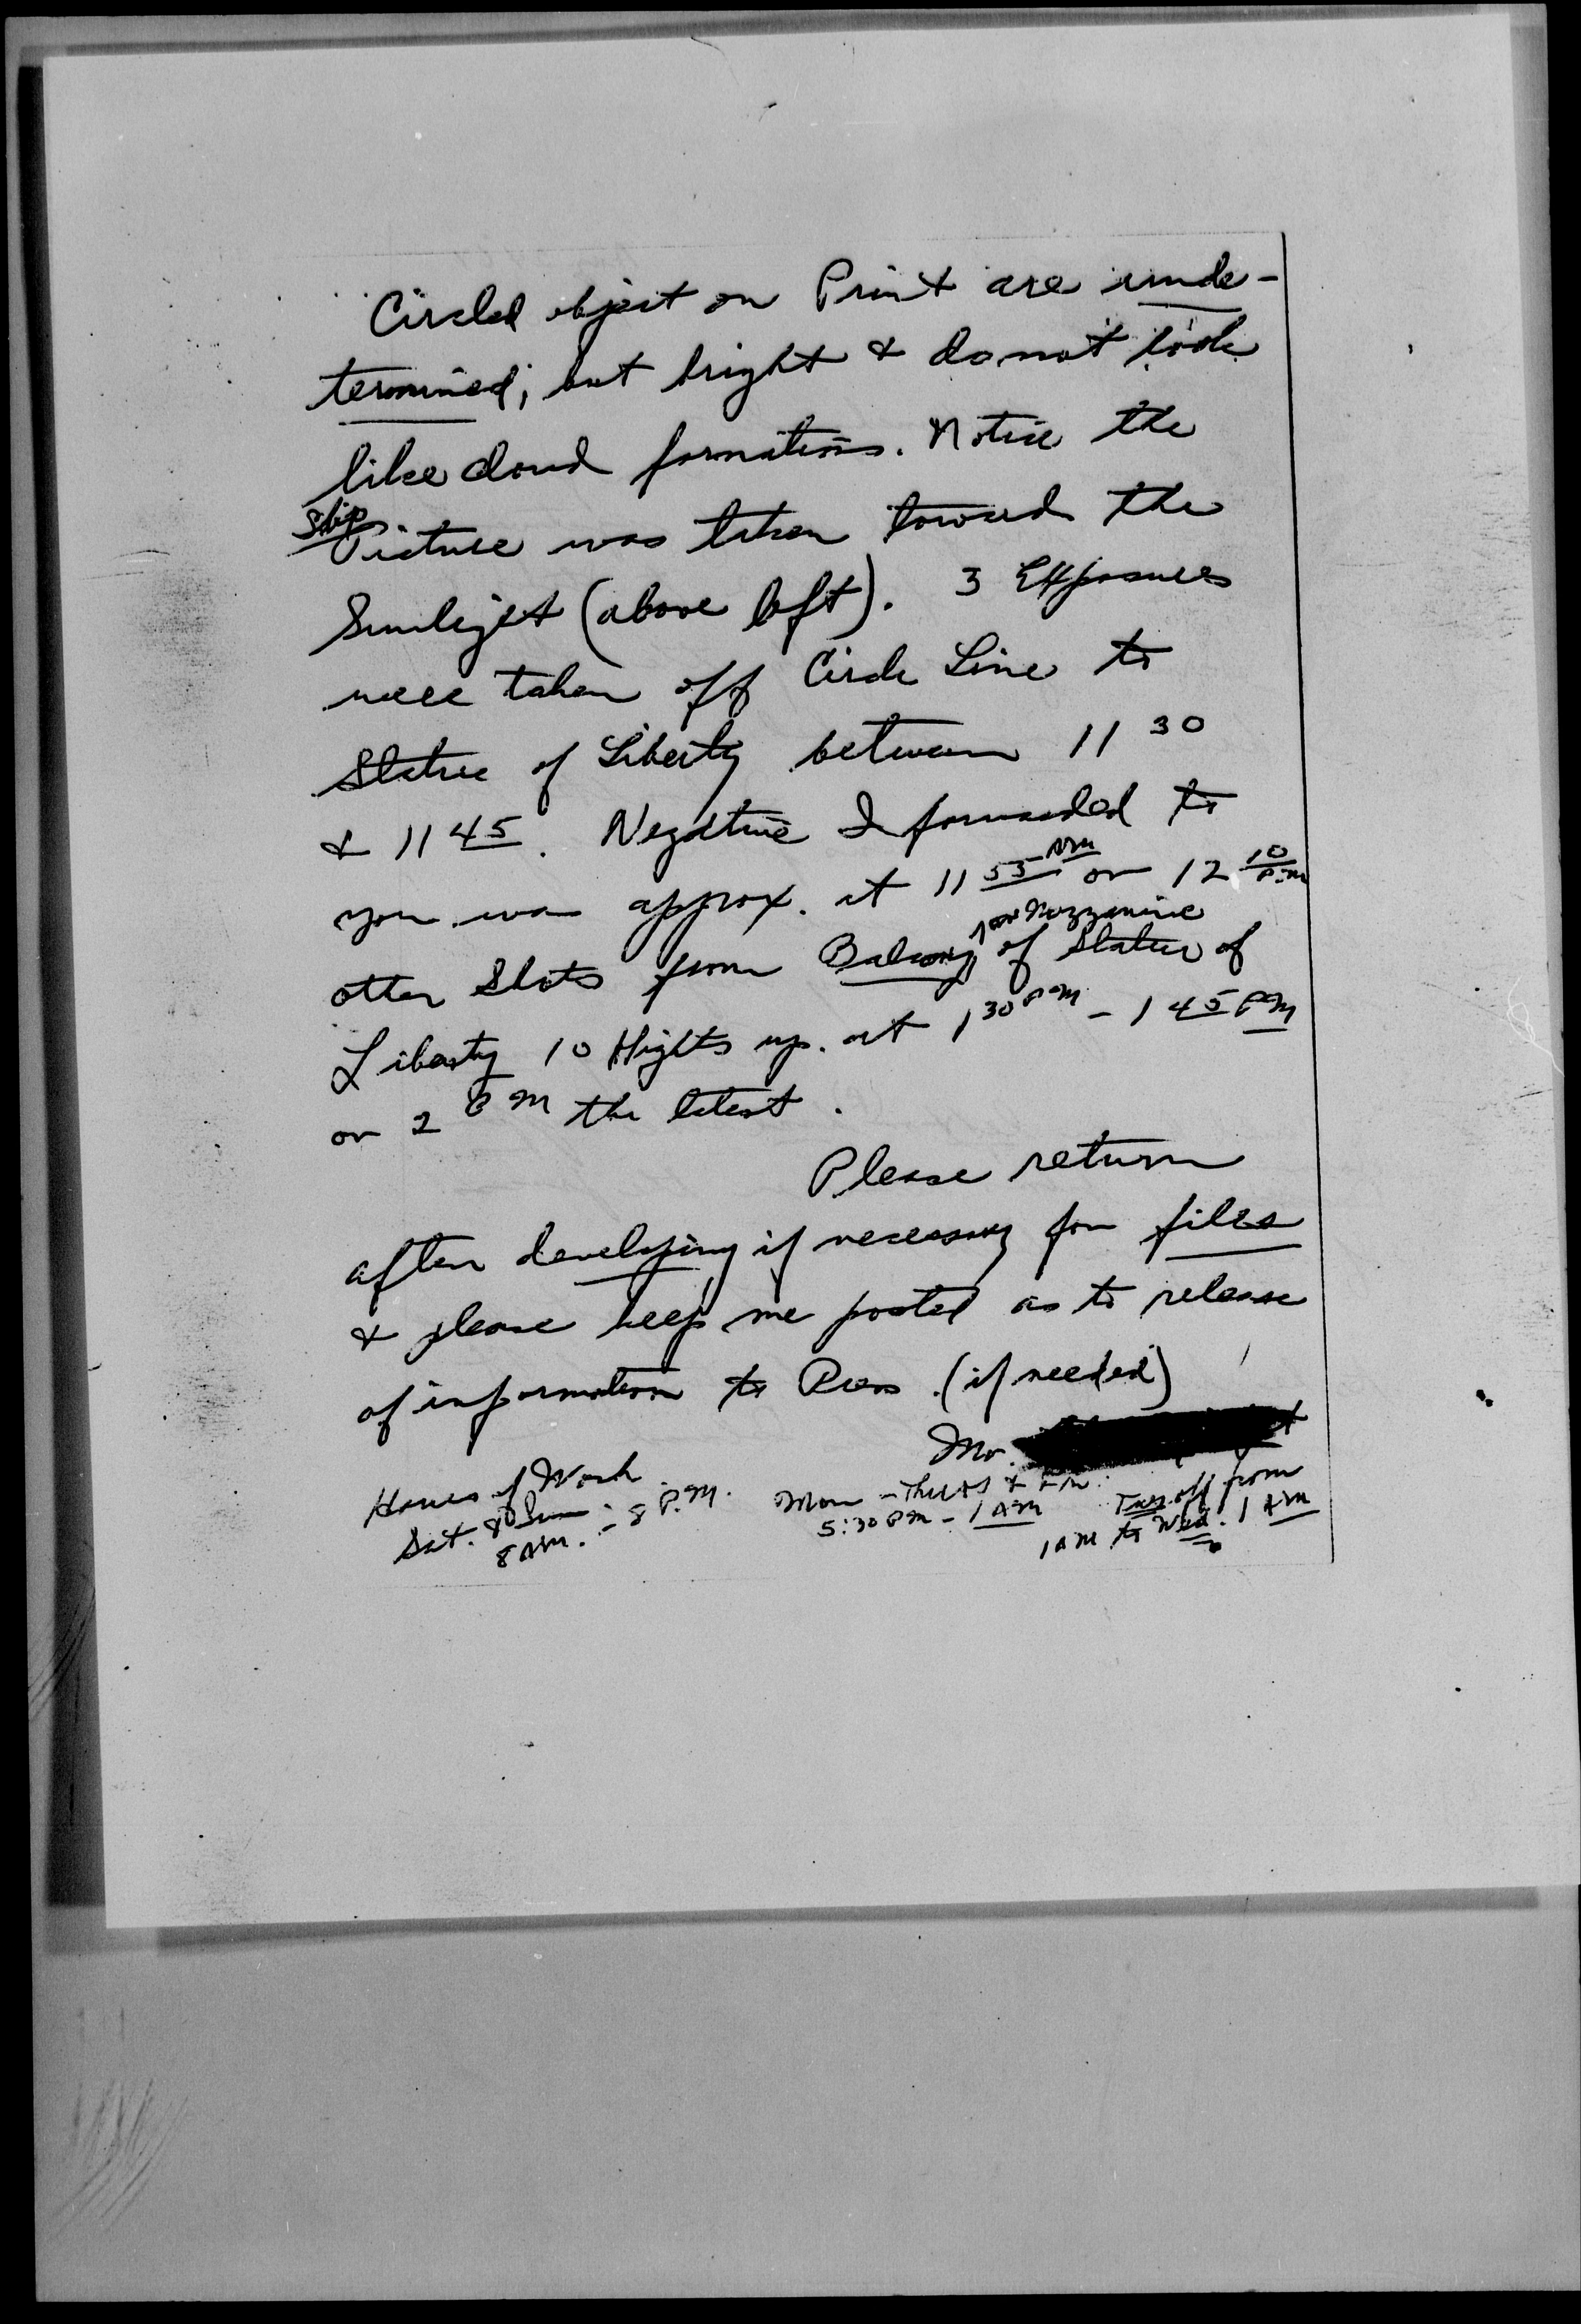 Circled object on Print are unde-
termined; but bright & do not look
like cloud formations. Notice the
Ship
Picture was taken toward the
Sunlight (above left). 3 Exposures
were taken off Circle Line to
Statue of Liberty between 11 30
& 11 45. Negative I forwarded to
you was approx. at 11 55 AM or 12 10 P.M
or Mezzanine
other Shots from Balcony of Statue of
Liberty 10 flights up. at 1 30 PM - 1 45 PM
or 2 PM the latest.
Please return
after developing if necessary for files
& please keep me posted as to release
of information to Press. (if needed)
Mr.
Hours of Work
Sat. & Sun - 8 P.M.
8 AM.
Mon - Thurs & Fri.
5:30 PM - 1 AM
Tues. off from
1 AM to Wed. 1 AM